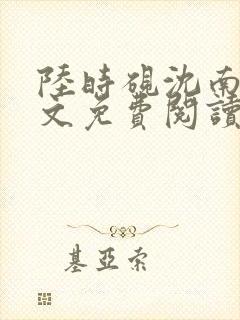 陸時硯沈南
文免費閱讀
基亞索